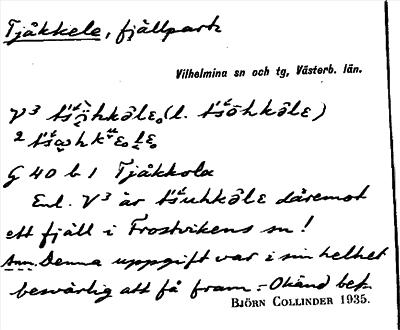 Tjåkkele, fjällpart
Vilhelmina sn och tg, Västerb. län.
V³ t'šŏ̀hkǝ̂lɛ̥ (l. t'šŏhkǝ̂lɛ)
G 40 b 1 Tjåkkola
Enl. V³ är t'šuhkǝ̂lɛ däremot
ett fjäll i Frostvikens sn!
Anm. Denna uppgift var i sin helhet
besvärlig att få fram. - Okänd bet.
BJÖRN COLLINDER 1935.